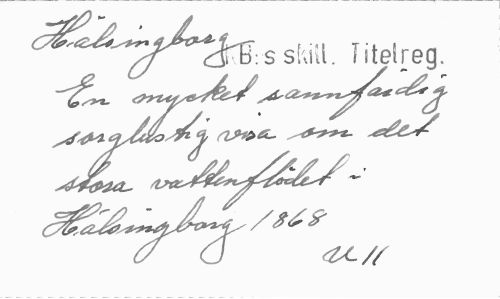 Hälsingborg
KB:s skill. Titelreg.
En mycket sannfärdig
sorglustig visa om det
stora vattenflödet i
Hälsingborg 1868
V 11